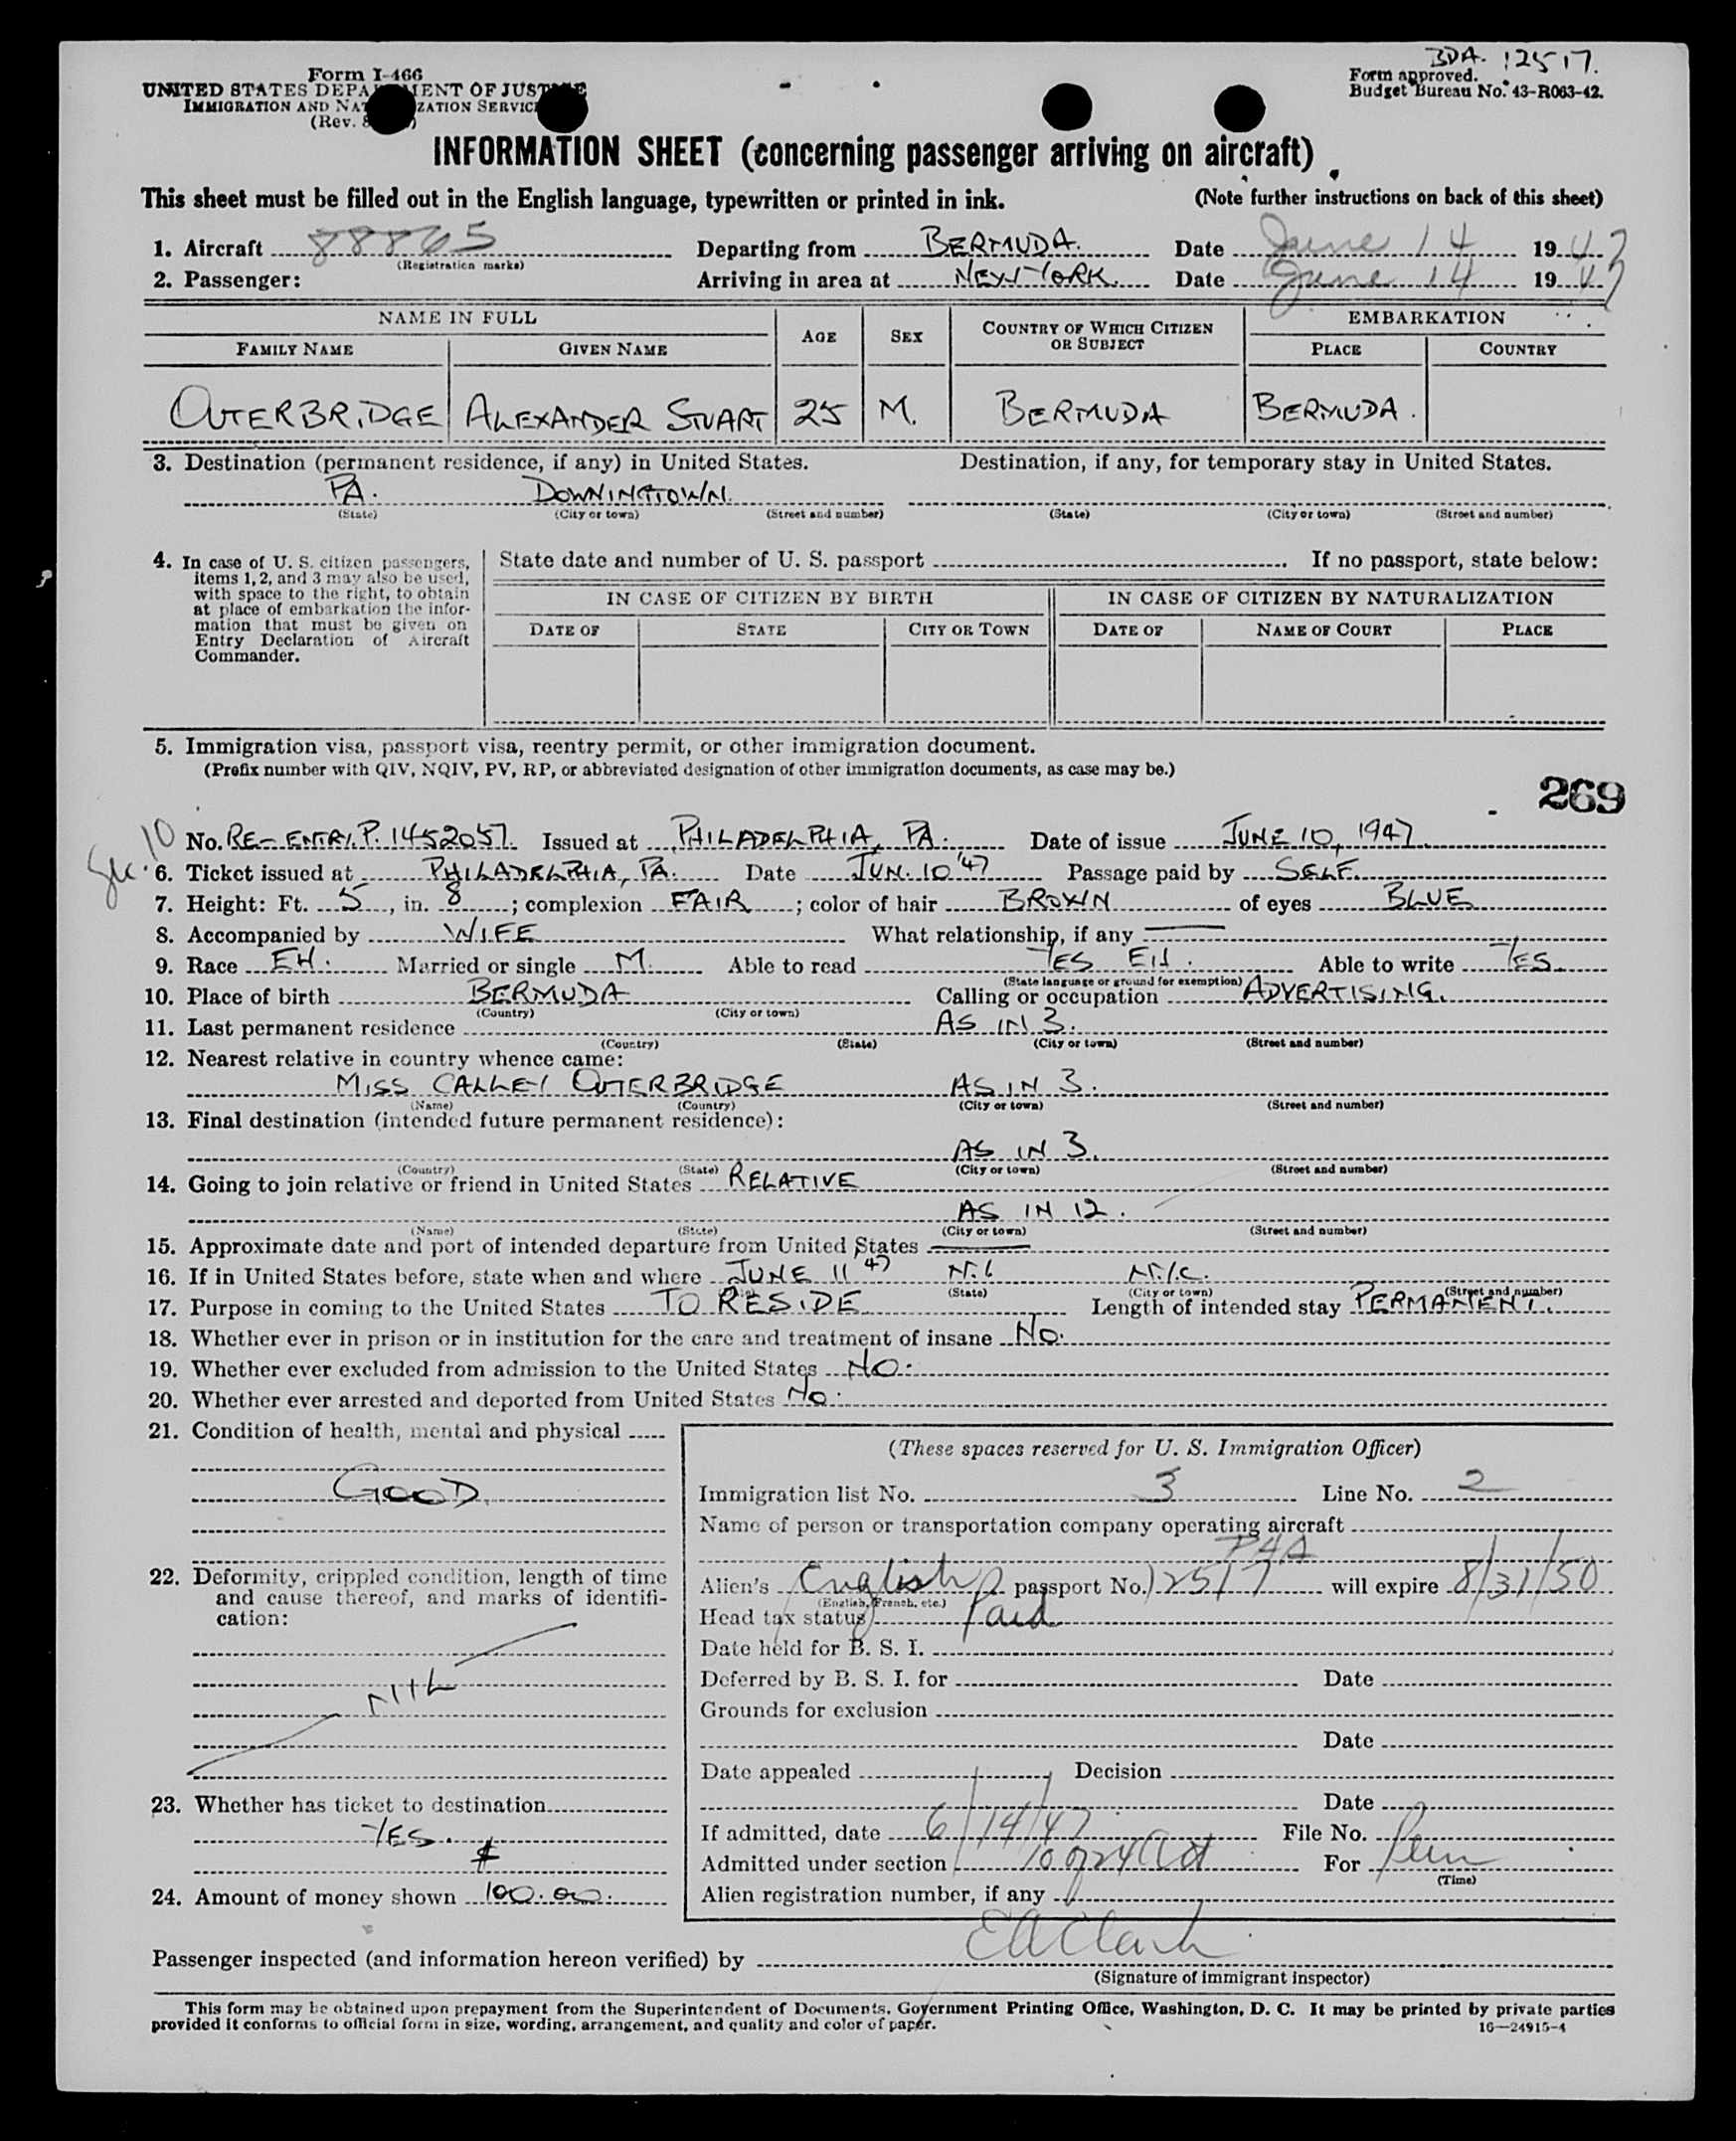 BDA. 12517.
Form I-466
UNITED STATES DEPARTMENT OF JUSTICE
IMMIGRATION AND NATURALIZATION SERVICE
(Rev.
Form approved.
Budget Bureau No. 43-R063-42.
INFORMATION SHEET (concerning passenger arriving on aircraft)
This sheet must be filled out in the English language, typewritten or printed in ink. (Note further instructions on back of this sheet)
1. Aircraft 88865 Departing from BERMUDA. Date June 14 1947
(Registration marks)
2. Passenger: Arriving in area at NEW YORK. Date June 14 1947
NAME IN FULL AGE SEX COUNTRY OF WHICH CITIZEN OR SUBJECT EMBARKATION
FAMILY NAME GIVEN NAME PLACE COUNTRY
OUTERBRIDGE ALEXANDER STUART 25 M. BERMUDA BERMUDA.
3. Destination (permanent residence, if any) in United States. Destination, if any, for temporary stay in United States.
PA. DOWNINGTOWN.
(State) (City or town) (Street and number) (State) (City or town) (Street and number)
4. In case of U. S. citizen passengers,
items 1, 2, and 3 may also be used,
with space to the right, to obtain
at place of embarkation the infor-
mation that must be given on
Entry Declaration of Aircraft
Commander.
State date and number of U. S. passport If no passport, state below:
IN CASE OF CITIZEN BY BIRTH IN CASE OF CITIZEN BY NATURALIZATION
DATE OF STATE CITY OR TOWN DATE OF NAME OF COURT PLACE
5. Immigration visa, passport visa, reentry permit, or other immigration document.
(Prefix number with QIV, NQIV, PV, RP, or abbreviated designation of other immigration documents, as case may be.)
269
10 No. RE-ENTRY. P. 1452057. Issued at PHILADELPHIA, PA. Date of issue JUNE 10, 1947.
6. Ticket issued at PHILADELPHIA, PA. Date JUN. 10 '47 Passage paid by SELF.
7. Height: Ft. 5, in. 8; complexion FAIR; color of hair BROWN of eyes BLUE
8. Accompanied by WIFE What relationship, if any
9. Race EH. Married or single M. Able to read YES EH. Able to write YES
(State language or ground for exemption)
10. Place of birth BERMUDA Calling or occupation ADVERTISING.
(Country) (City or town)
11. Last permanent residence AS IN 3.
(Country) (State) (City or town) (Street and number)
12. Nearest relative in country whence came:
MISS CALLEY OUTERBRIDGE AS IN 3.
(Name) (Country) (City or town) (Street and number)
13. Final destination (intended future permanent residence):
AS IN 3.
(Country) (State) (City or town) (Street and number)
14. Going to join relative or friend in United States RELATIVE
AS IN 12.
(Name) (State) (City or town) (Street and number)
15. Approximate date and port of intended departure from United States
16. If in United States before, state when and where JUNE 11 47 N.Y. N.Y.C.
(State) (City or town) (Street and number)
17. Purpose in coming to the United States TO RESIDE Length of intended stay PERMANENT.
18. Whether ever in prison or in institution for the care and treatment of insane NO.
19. Whether ever excluded from admission to the United States NO.
20. Whether ever arrested and deported from United States NO.
21. Condition of health, mental and physical
GOOD.
22. Deformity, crippled condition, length of time
and cause thereof, and marks of identifi-
cation:
NIL
23. Whether has ticket to destination
YES.
$
24. Amount of money shown 100.00.
(These spaces reserved for U. S. Immigration Officer)
Immigration list No. 3 Line No. 2
Name of person or transportation company operating aircraft
PAA
Alien's English passport No. 12517 will expire 8/31/50
(English, French, etc.)
Head tax status Paid
Date held for B. S. I.
Deferred by B. S. I. for Date
Grounds for exclusion
Date
Date appealed Decision
Date
If admitted, date 6/14/47 File No.
Admitted under section 10 of 24 Act For Perm
(Time)
Alien registration number, if any
Passenger inspected (and information hereon verified) by EAClark
(Signature of immigrant inspector)
This form may be obtained upon prepayment from the Superintendent of Documents, Government Printing Office, Washington, D. C. It may be printed by private parties
provided it conforms to official form in size, wording, arrangement, and quality and color of paper.
16—24915-4